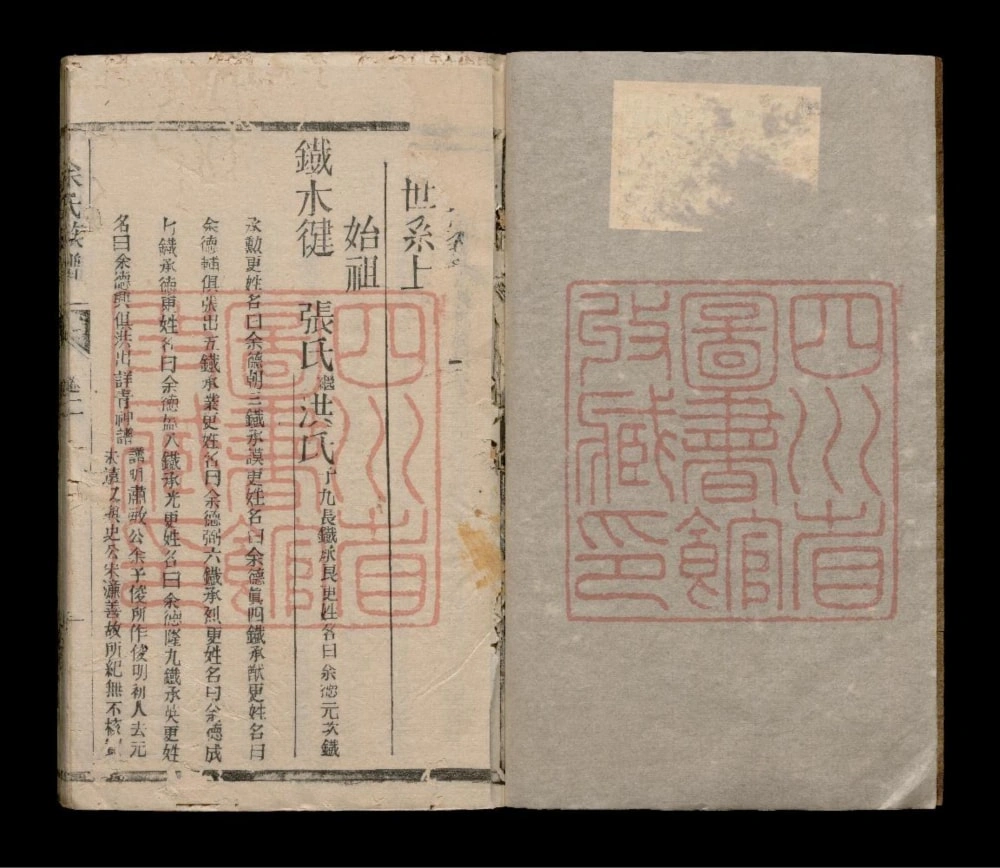 四川省
圖書館
收藏印
世系上
始祖
鐵木健 張氏繼洪氏子九長鐵承良更姓名曰余德元次鐵
承勳更姓名曰余德朝三鐵承謨更姓名曰余德眞四鐵承猷更姓名曰
余德輔俱張出五鐵承業更姓名曰余德弼六鐵承烈更姓名曰余德成
七鐵承德更姓名曰余德 八鐵承光更姓名曰余德隆九鐵承英更姓
名曰余德興俱洪出詳青神譜
譜明肅敏公余子俊所作俊明初人去元
未遠又與史公宋濂善故所紀無不核
余氏族譜
四川省
圖書館
收藏印